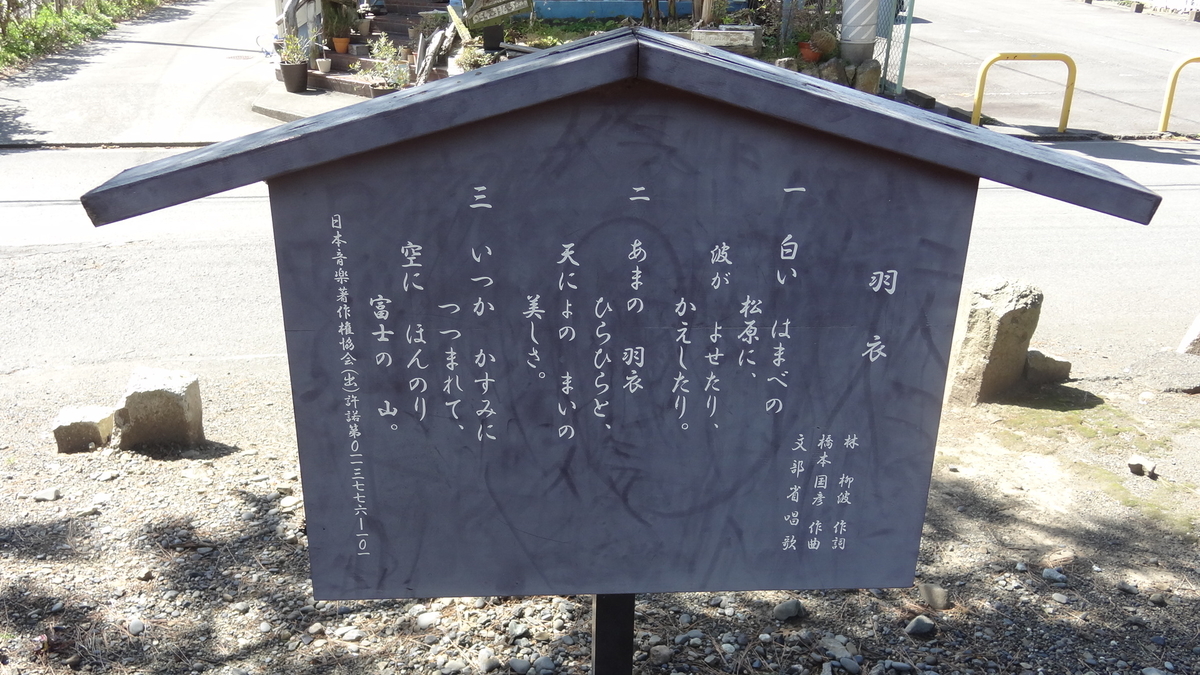 羽衣
林 柳波 作詞
橋本 国彦 作曲
文部省唱歌
一 白い はまべの
松原に、
波が よせたり、
かえしたり。
二 あまの 羽衣
ひらひらと、
天にょの まいの
美しさ。
三 いつか かすみに
つつまれて、
空に ほんのり
富士の 山。
日本音楽著作権協会(出)許諾第〇一三七七六一一〇一